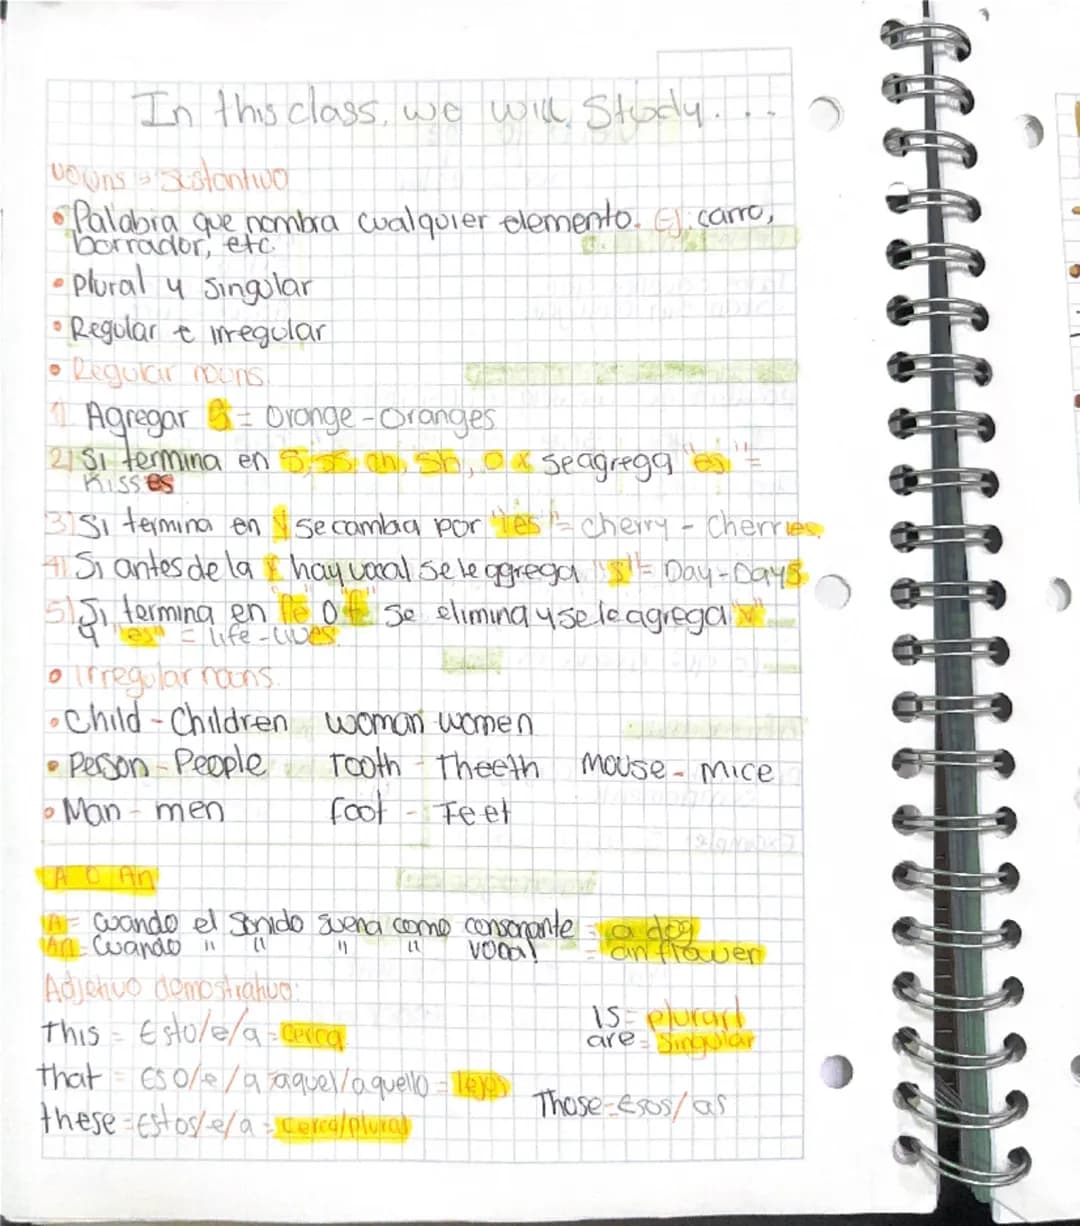 In this class, we will Study....
nouns → Sustantivo
• Palabra que nombra cualquier elemento. Ej: carro,
borrador, etc.
• Plural y Singular
• Regular e irregular
• Regular nouns
1 Agregar S = Orange - Oranges
2) Si termina en S, SS, Ch, Sh, O X se agrega "es" =
Kisses
3) Si termina en Y se cambia por "ies" = Cherry - Cherries.
4) Si antes de la Y hay vocal se le agrega "S" = Day - Days
5) Si termina en "fe" O "f" Se elimina y se le agrega "v"
y "es" = Life - Lives.
• Irregular nouns.
• Child - Children woman women
• Person - People Tooth - Theeth Mouse - Mice
• Man - men Foot - Feet
A O An
A = Cuando el Sonido suena como consonante = a dog
An = Cuando " " " " vocal = an flower
Adjetivo demostrativo:
This = Esto/e/a = Cerca
Is = plural
are = Singular
that = Eso/e/a aquel/aquello = lejos
Those = Esos/as
these = Estos/e/a = Cerca/plural